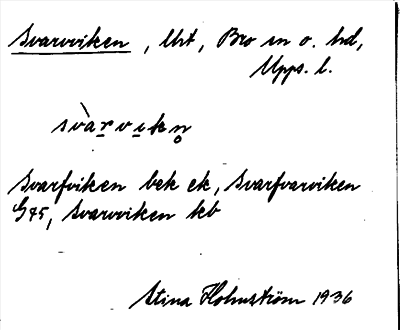 Svarvviken, lht, Bro sn o. hd,
Upps. l.
svàrvikn̥
Svarfviken bek ek, Svarfvarviken
G 45, Svarvviken kb
Stina Holmström 1936